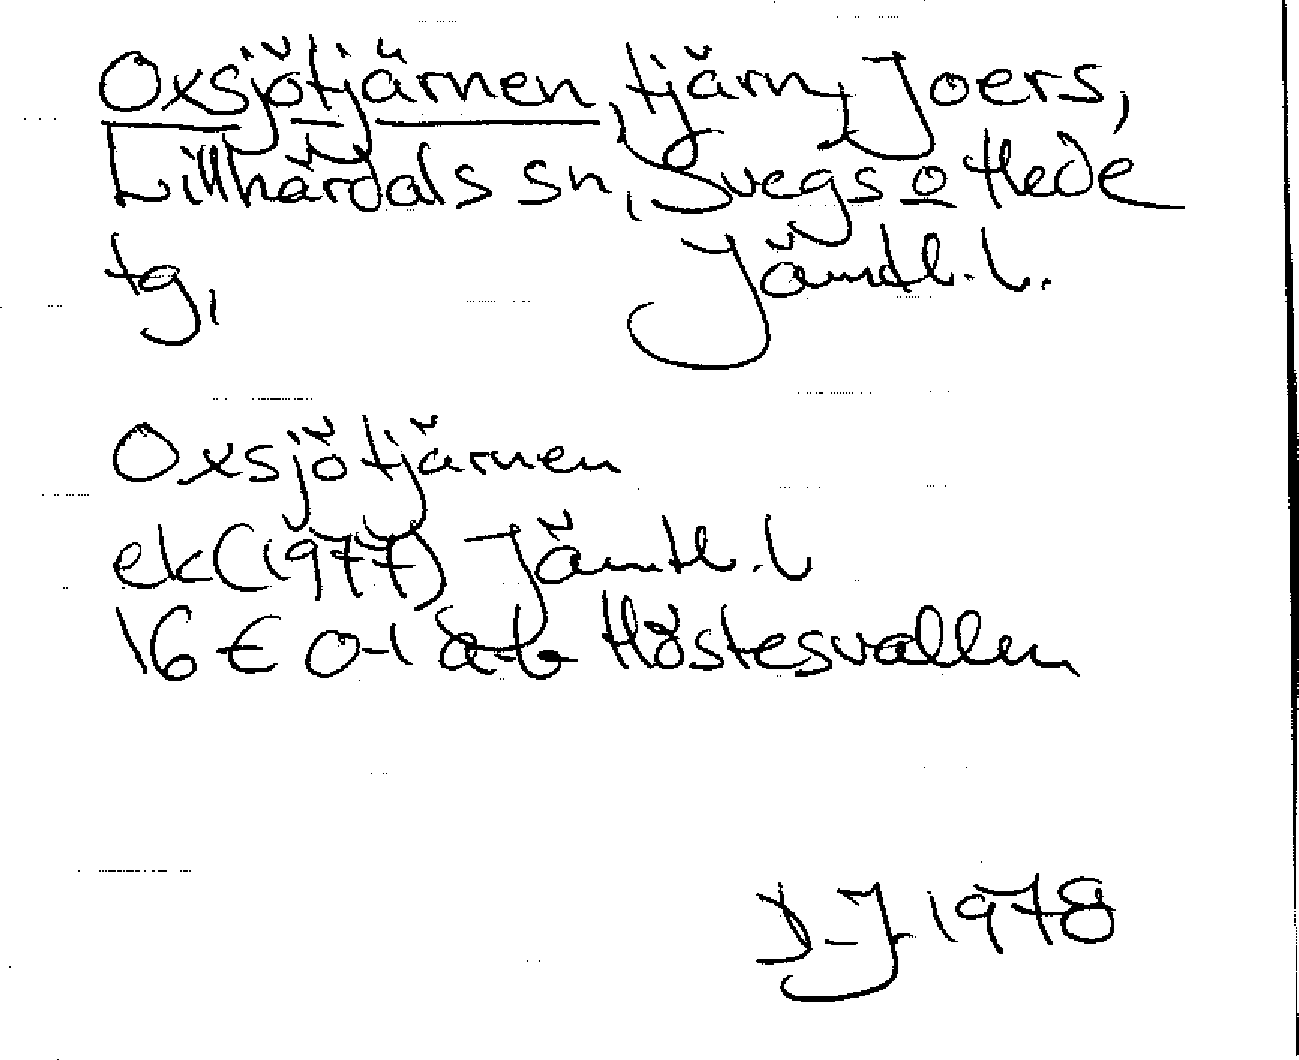 Oxsjötjärnen, tjärn, Joers,
Lillhärdals sn, Svegs o Hede
tg, Jämtl. l.
Oxsjötjärnen
ek (1977) Jämtl. l
16 E 0-1 a-b Höstesvallen
D-J 1978